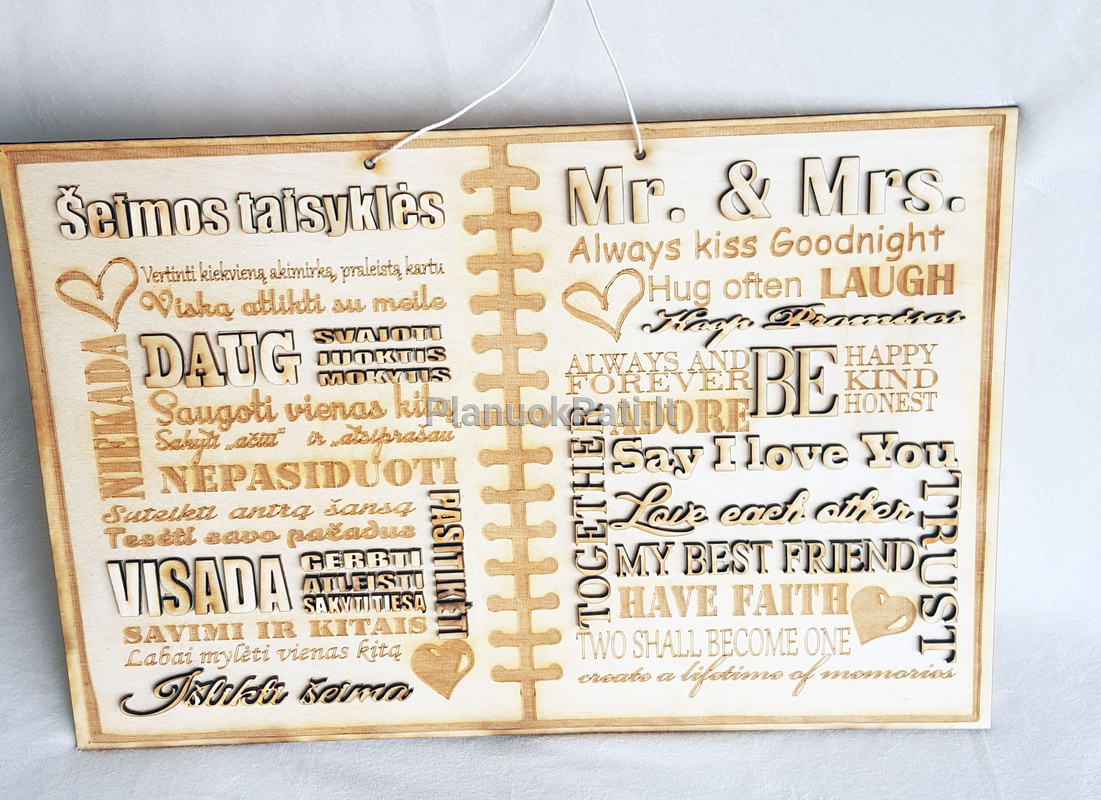 Šeimos taisyklės
Vertinti kiekvieną akimirką, praleistą kartu
Viską atlikti su meile
NIEKADA
DAUG
SVAJOTI
JUOKTIS
MOKYTIS
Saugoti vienas
Sakyti „ačiū“ ir „atsiprašau
NEPASIDUOTI
Suteikti antrą šansą
Tesėti savo pažadus
PASITIKĖTI
VISADA
GERBTI
ATLEISTI
SAKYTI TIESĄ
SAVIMI IR KITAIS
Labai mylėti vienas kitą
Išlikti šeima
Mr. & Mrs.
Always kiss Goodnight
Hug often LAUGH
Keep Promises
ALWAYS AND
FOREVER
BE
HAPPY
KIND
HONEST
ADORE
TOGETHER
Say I love You
Love each other
TRUST
MY BEST FRIEND
HAVE FAITH
TWO SHALL BECOME ONE
create a lifetime of memories
PlanuokPati.lt